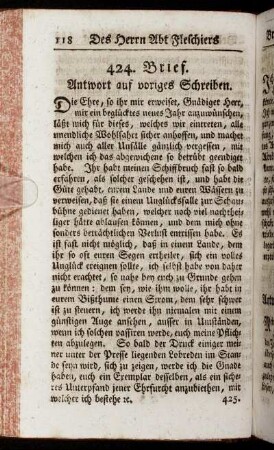 118 Des Herrn Abt Fleschiers
424. Brief.
Antwort auf voriges Schreiben.
Die Ehre, so ihr mir erweiset, Gnädiger Herr,
mir ein beglücktes neues Jahr anzuwünschen,
läßt mich für dieses, welches wir eintreten, alle
unendliche Wohlfahrt sicher anhoffen, und machet
mich auch aller Unfälle gänzlich vergessen, mit
welchen ich das abgewichene so betrübt geendiget
habe. Ihr habt meinen Schiffbruch fast so bald
erfahren, als solcher geschehen ist, und habt die
Güte gehabt, euren Lande und euren Wässern zu
verweisen, daß sie einem Unglücksfalle zur Schau-
bühne gedienet haben, welcher noch viel nachthei-
liger hätte ablaufen können, und dem mich ohne
sonders beträchtlichen Verlust entrissen habe. Es
ist fast nicht möglich, daß in einem Lande, dem
ihr so oft euren Segen ertheilet, sich ein volles
Unglück ereignen sollte, ich selbst habe von dan-
nen nicht so nahe bey euch zu Grunde gehen
zu können: dem sey, wie ihm wolle, ihr habt in
eurem Bißthume einen Strom, dem sehr schwer
ist zu steuern, ich werde ihn niemalen mit einem
günstigen Auge ansehen, ausser in Umständen,
wenn ich solchen passiren werde, euch meine Pflich-
ten abzulegen. So bald der Druck einiger mei-
ner unter der Presse liegenden Lobreden im Stan-
de seyn wird, sich zu zeigen, werde ich die Gnade
haben, euch ein Exemplar desselben, als ein siche-
res Unterpfand jener Ehrfurcht anzubiethen, mit
welcher ich bestehe ꝛc.
425.